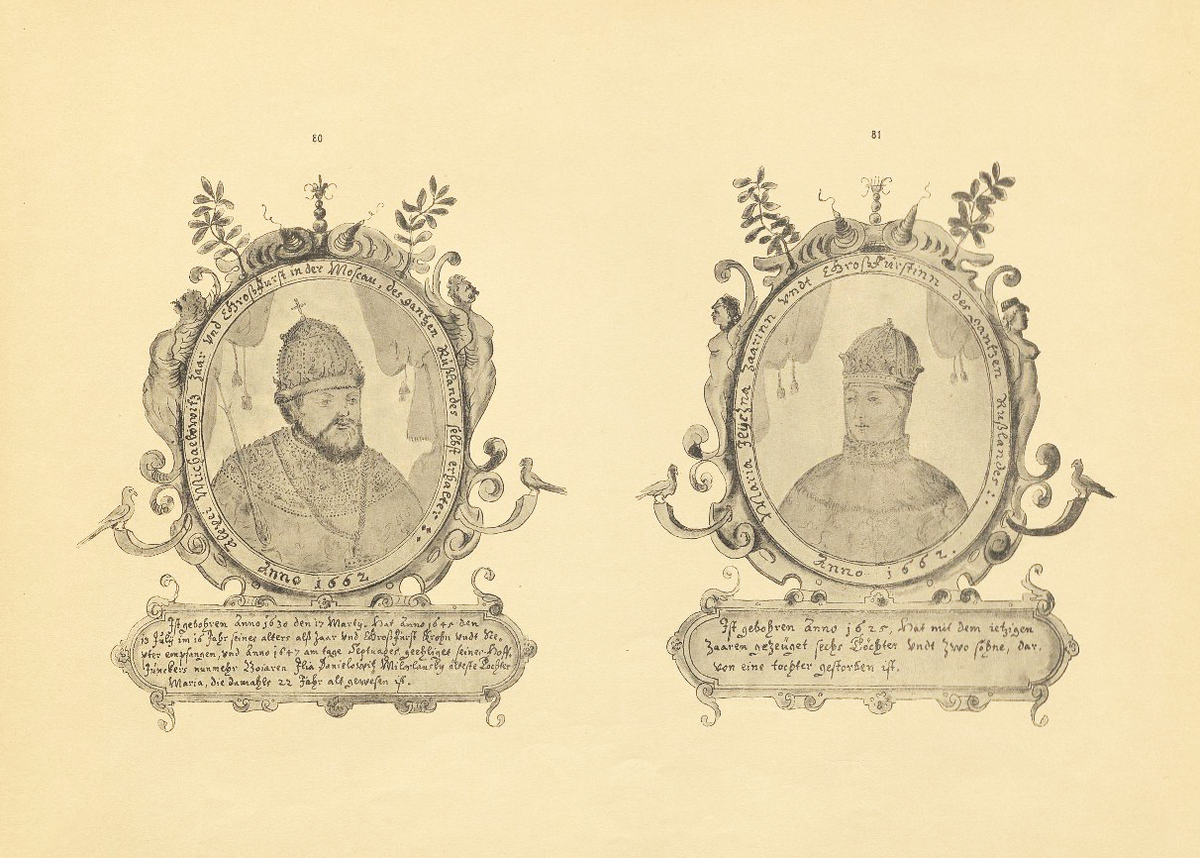 80
Alexei Michaelowitz Zaar Vnd Großfürst in der Moscau, des gantzen Rußlandes selbst erhalter
Anno 1662
Ist gebohren Anno 1630 den 17 Marty. Hat Anno 1645 den
13 July im 16 Jahr seines alters alß Zaar vnd Großfürst Krohn vndt Sce-
pter empfangen, vnd Anno 1647 am tage Septuages. geehliget seines Hoff.
Junckers nunmehr Bojaren Ilia Danielowitz Miloslausky älteste Tochter
Maria, die damahls 22 Jahr alt gewesen ist.
81
Maria Ilyiczna Zaarinn vndt Großfürstinn des gantzen Rußlandes
Anno 1662.
Ist gebohren Anno 1625, Hat mit dem ietzigen
Zaaren gezeüget sechs Töchter vndt Zwo söhne, dar.
von eine tochter gestorben ist.